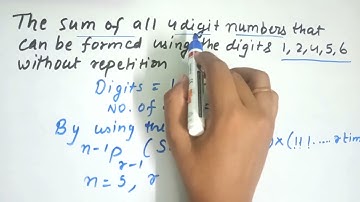 The sum of all 4 digit numbers that
can be formed using the digits 1, 2, 4, 5, 6
without repetition
Digits = 1
No. of =
By using the
n-1 P r-1 (S × (111.....r tim
n = 5, r